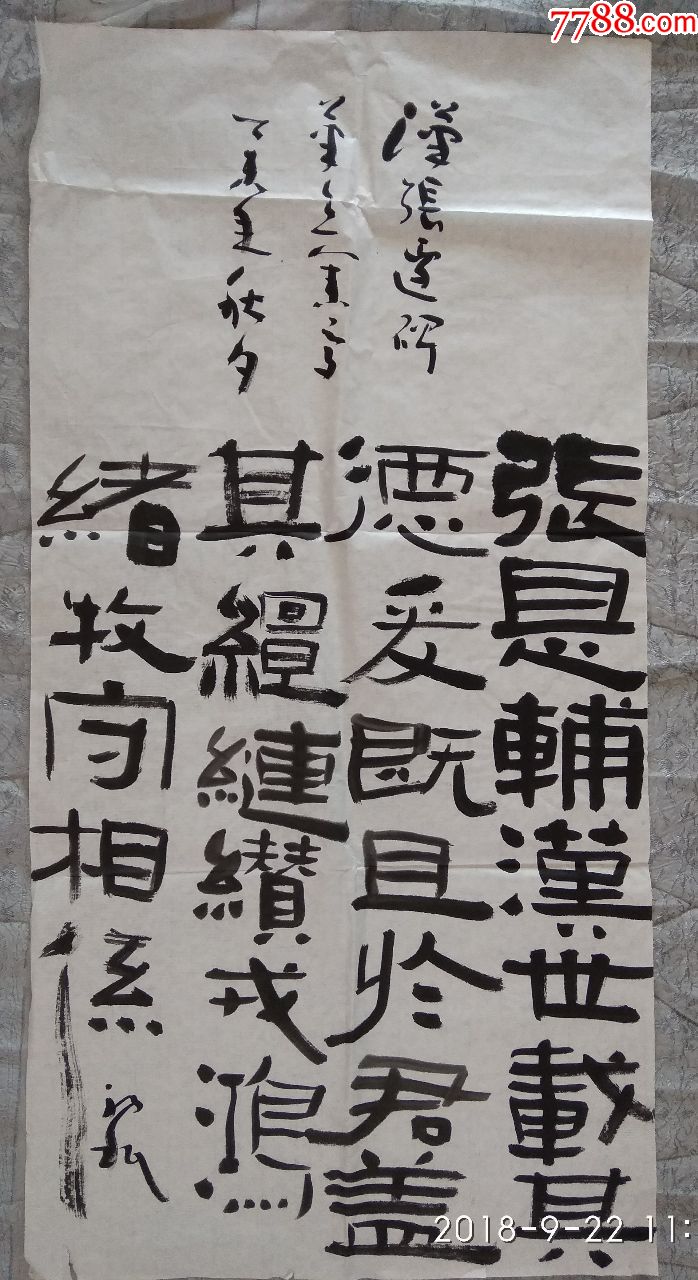 7788.com
漢張遷碑
秋夕
張是輔漢世載其
德爰既且於君蓋
其繵縺纘戎鴻
緒牧守相係
2018-9-22 11: